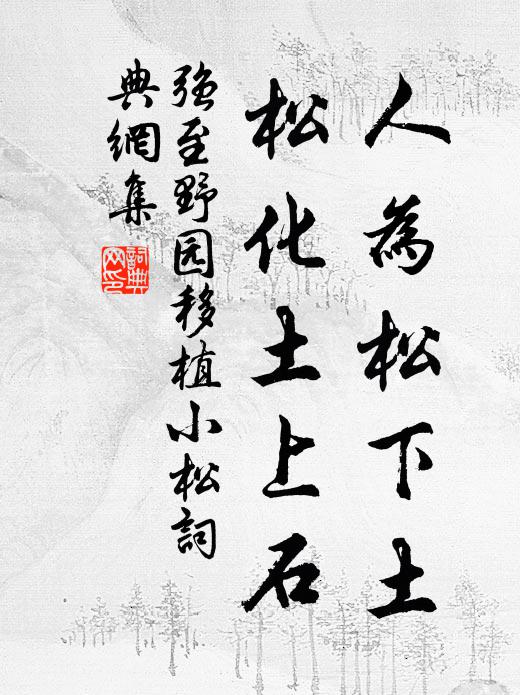 人為松下土
松化土上石
强至野园移植小松詞
典網集
詞典
网印